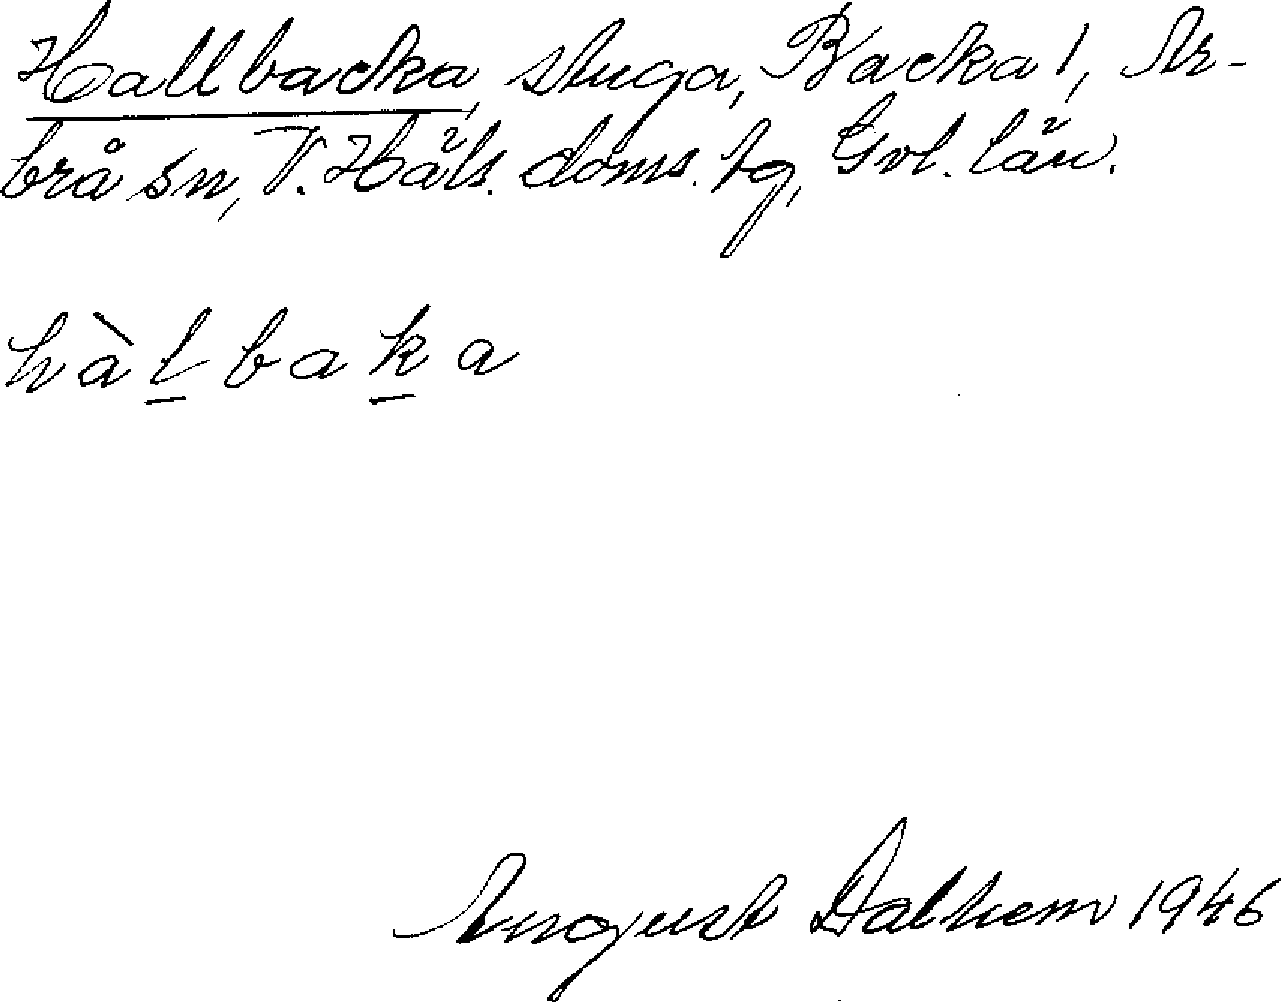 Hallbacka, stuga, Backa 1, Ar-
brå sn, V. Häls. doms. tg, Gvl. län.
hàl̲bak̲a
August Dalhem 1946